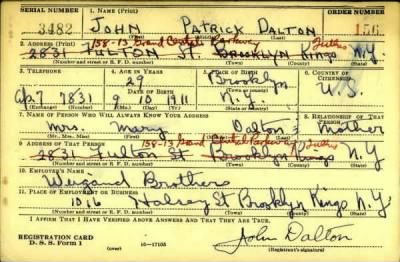 SERIAL NUMBER 1. NAME (Print) ORDER NUMBER
3482 JOHN PATRICK DALTON 156
(First) (Middle) (Last)
2. ADDRESS (Print) 158-13 Grand Central Parkway
2831 FULTON ST. BROOKLYN KINGS N.Y
(Number and street or R. F. D. number) (Town) (County) (State)
3. TELEPHONE 4. AGE IN YEARS 5. PLACE OF BIRTH 6. COUNTRY OF CITIZENSHIP
29 Brooklyn
DATE OF BIRTH (Town or county)
7831 9 10 1911 N.Y. U.S.
(Exchange) (No.) (Mo.) (Day) (Yr.) (State or country)
7. NAME OF PERSON WHO WILL ALWAYS KNOW YOUR ADDRESS 8. RELATIONSHIP OF THAT PERSON
Mrs. Mary Dalton Mother
(Mr., Mrs., Miss) (First) (Middle) (Last)
9. ADDRESS OF THAT PERSON 158-13 Grand Central Parkway
2831 Fulton St Brooklyn Kings N.Y
(Number and street or R. F. D. number) (Town) (County) (State)
10. EMPLOYER'S NAME
Weigand Brothers
11. PLACE OF EMPLOYMENT OR BUSINESS
1016 Halsey St Brooklyn Kings N.Y
(Number and street or R. F. D. number) (Town) (County) (State)
I AFFIRM THAT I HAVE VERIFIED ABOVE ANSWERS AND THAT THEY ARE TRUE.
REGISTRATION CARD
D. S. S. Form 1 (over) 16-17105
John Dalton
(Registrant's signature)